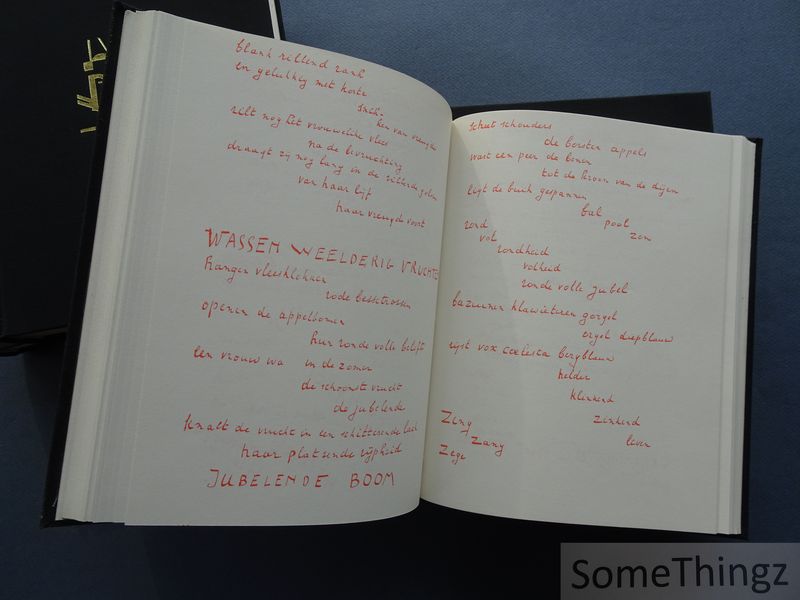 blank rillend rank
en gelukkig met korte
snik.
Een van vreugde
rilt nog het vrouwelike vlees
na de bevruchting
draagt zij nog lang in de rillende golven
van haar lijf
haar vreugde voort
WASSEN WEELDERIG VRUCHTE
hangen vleesklokken
rode bessetrossen
openen de appelbomen
hun ronde volle belofte
een vrouw wa in de zomer
de schoonste vrucht
de jubelende
knalt de vrucht in een schitterende lach
haar platsende rijpheid
JUBELENDE BOOM
schouders
de borsten appels
wast een peer de
tot de kroon van de dijen
ligt de buik gespannen
bal
pool
zon
rond
vol
rondheid
volheid
ronde volle jubel
bazuinen klawieteren gorgel
orgel diepblauw
rijst vox coelesta bergblauw
helder
klinkend
zinkend
leven
Zing
Zang
Zege
SomeThingz